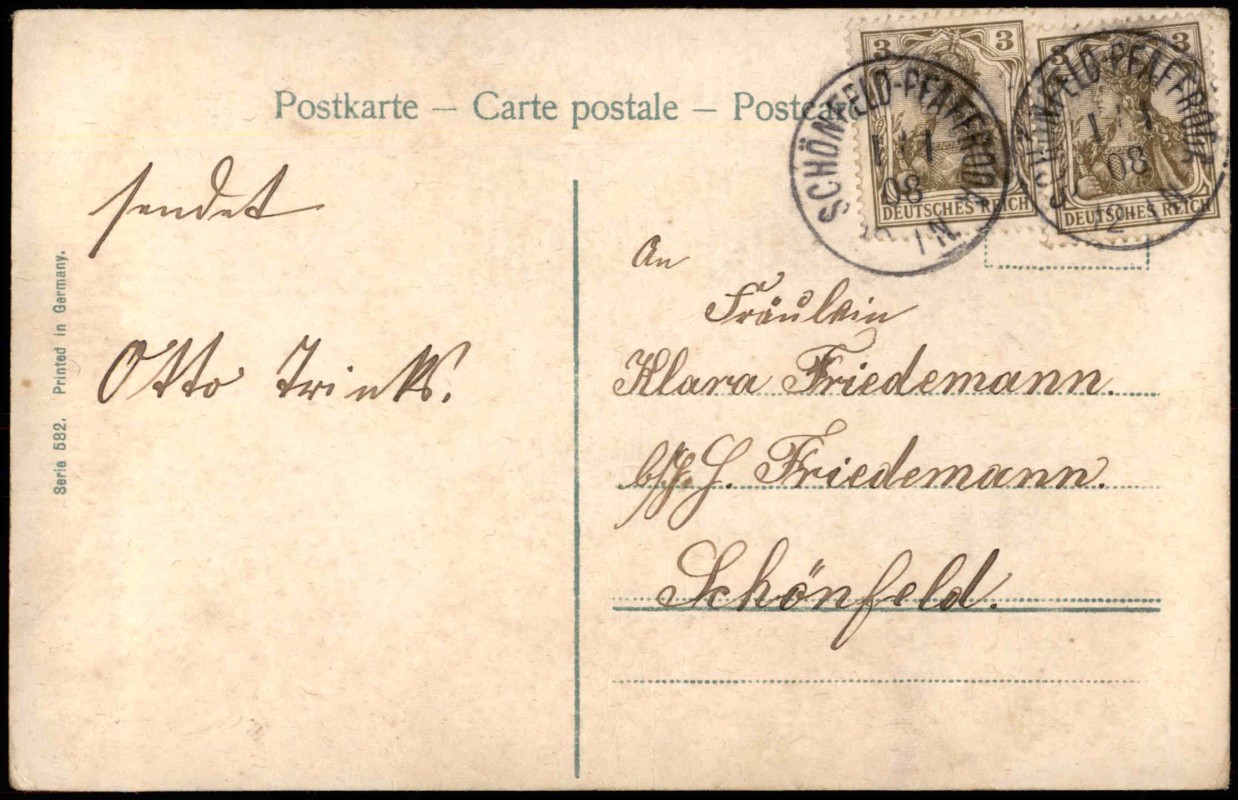 Postkarte – Carte postale – Postcard
3 3
DEUTSCHES REICH
3 3
DEUTSCHES REICH
SCHÖNFELD-PFAFFRODA
1 1
08
N.
SCHÖNFELD-PFAFFRODA
1 1
08
12 N.
sendet
Otto Trinks.
Serie 582. Printed in Germany.
An
Fräulein
Klara Friedemann.
H. Friedemann.
Schönfeld.